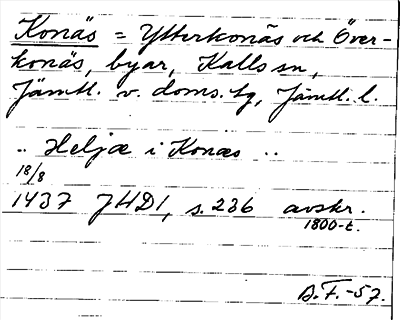 Konäs = Ytterkonäs och Över-
konäs, byar, Kalls sn,
Jämtl. v. doms. tg, Jämtl. l.
.. Heljæ i Konæs ..
18/8
1437 JHD1, s. 236 avskr.
1800-t.
B.F.-57.